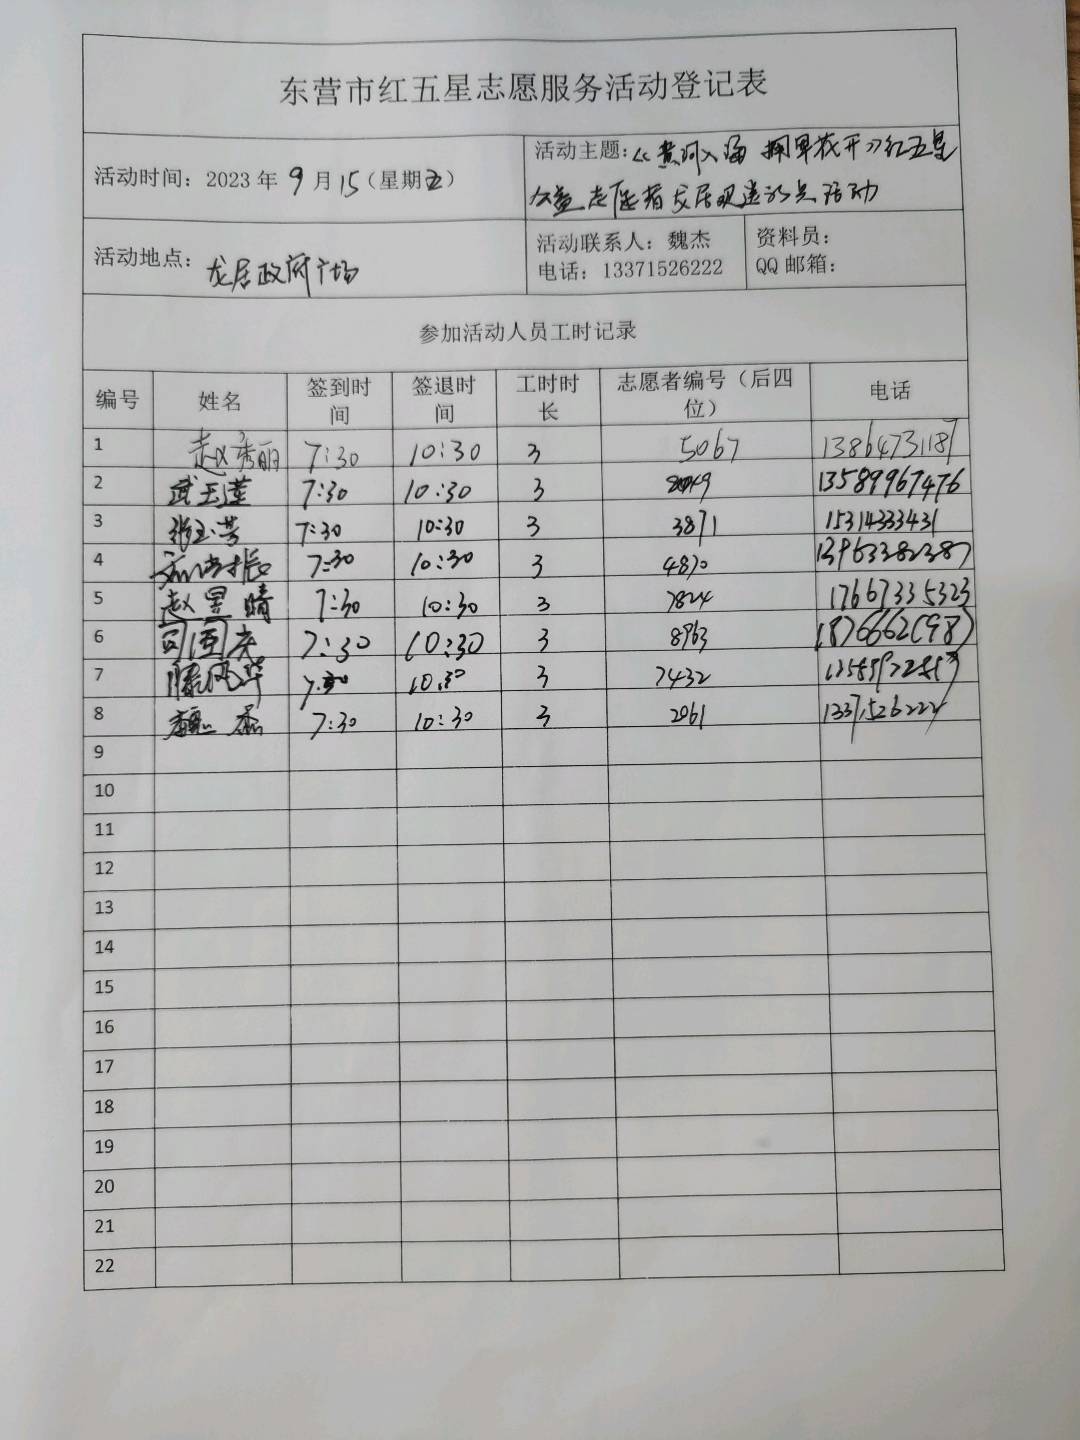 东营市红五星志愿服务活动登记表
活动时间：2023年9月15（星期五）
活动主题：《黄河入海 拥军花开》红五星
公益志愿者龙居观进站点活动
活动地点：龙居政府广场
活动联系人：魏杰
电话：13371526222
资料员：
QQ邮箱：
参加活动人员工时记录
编号 姓名 签到时间 签退时间 工时时长 志愿者编号（后四位） 电话
1 赵秀丽 7:30 10:30 3 5067 13864731187
2 武玉莲 7:30 10:30 3 13589967476
3 张玉芳 7:30 10:30 3 3871 15314333431
4 7:30 10:30 3 4870 13963382387
5 赵昱晴 7:30 10:30 3 7824 17667335323
6 7:30 10:30 3 8963 18766621987
7 滕凤华 7:30 10:30 3 7432
8 魏杰 7:30 10:30 3 2061 13371526222
9
10
11
12
13
14
15
16
17
18
19
20
21
22